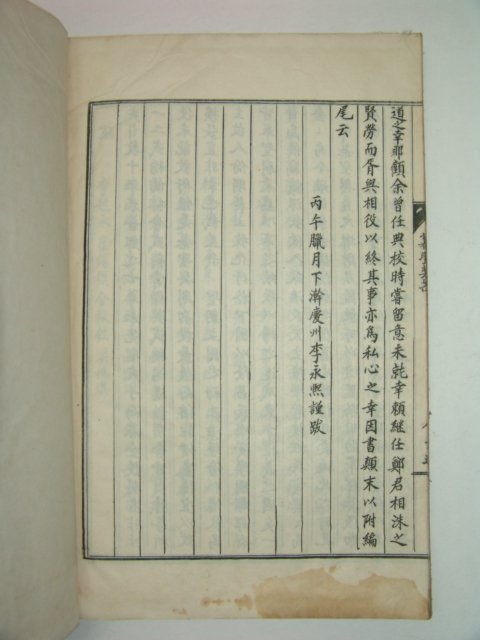 道之幸耶顧余曾任典校時嘗留意未乾幸賴継任鄭君相洙之
賢勞而胥與相役以終其事亦為私心之幸因書顛末以附編
尾云
丙午臘月下澣慶州李永熙謹跋